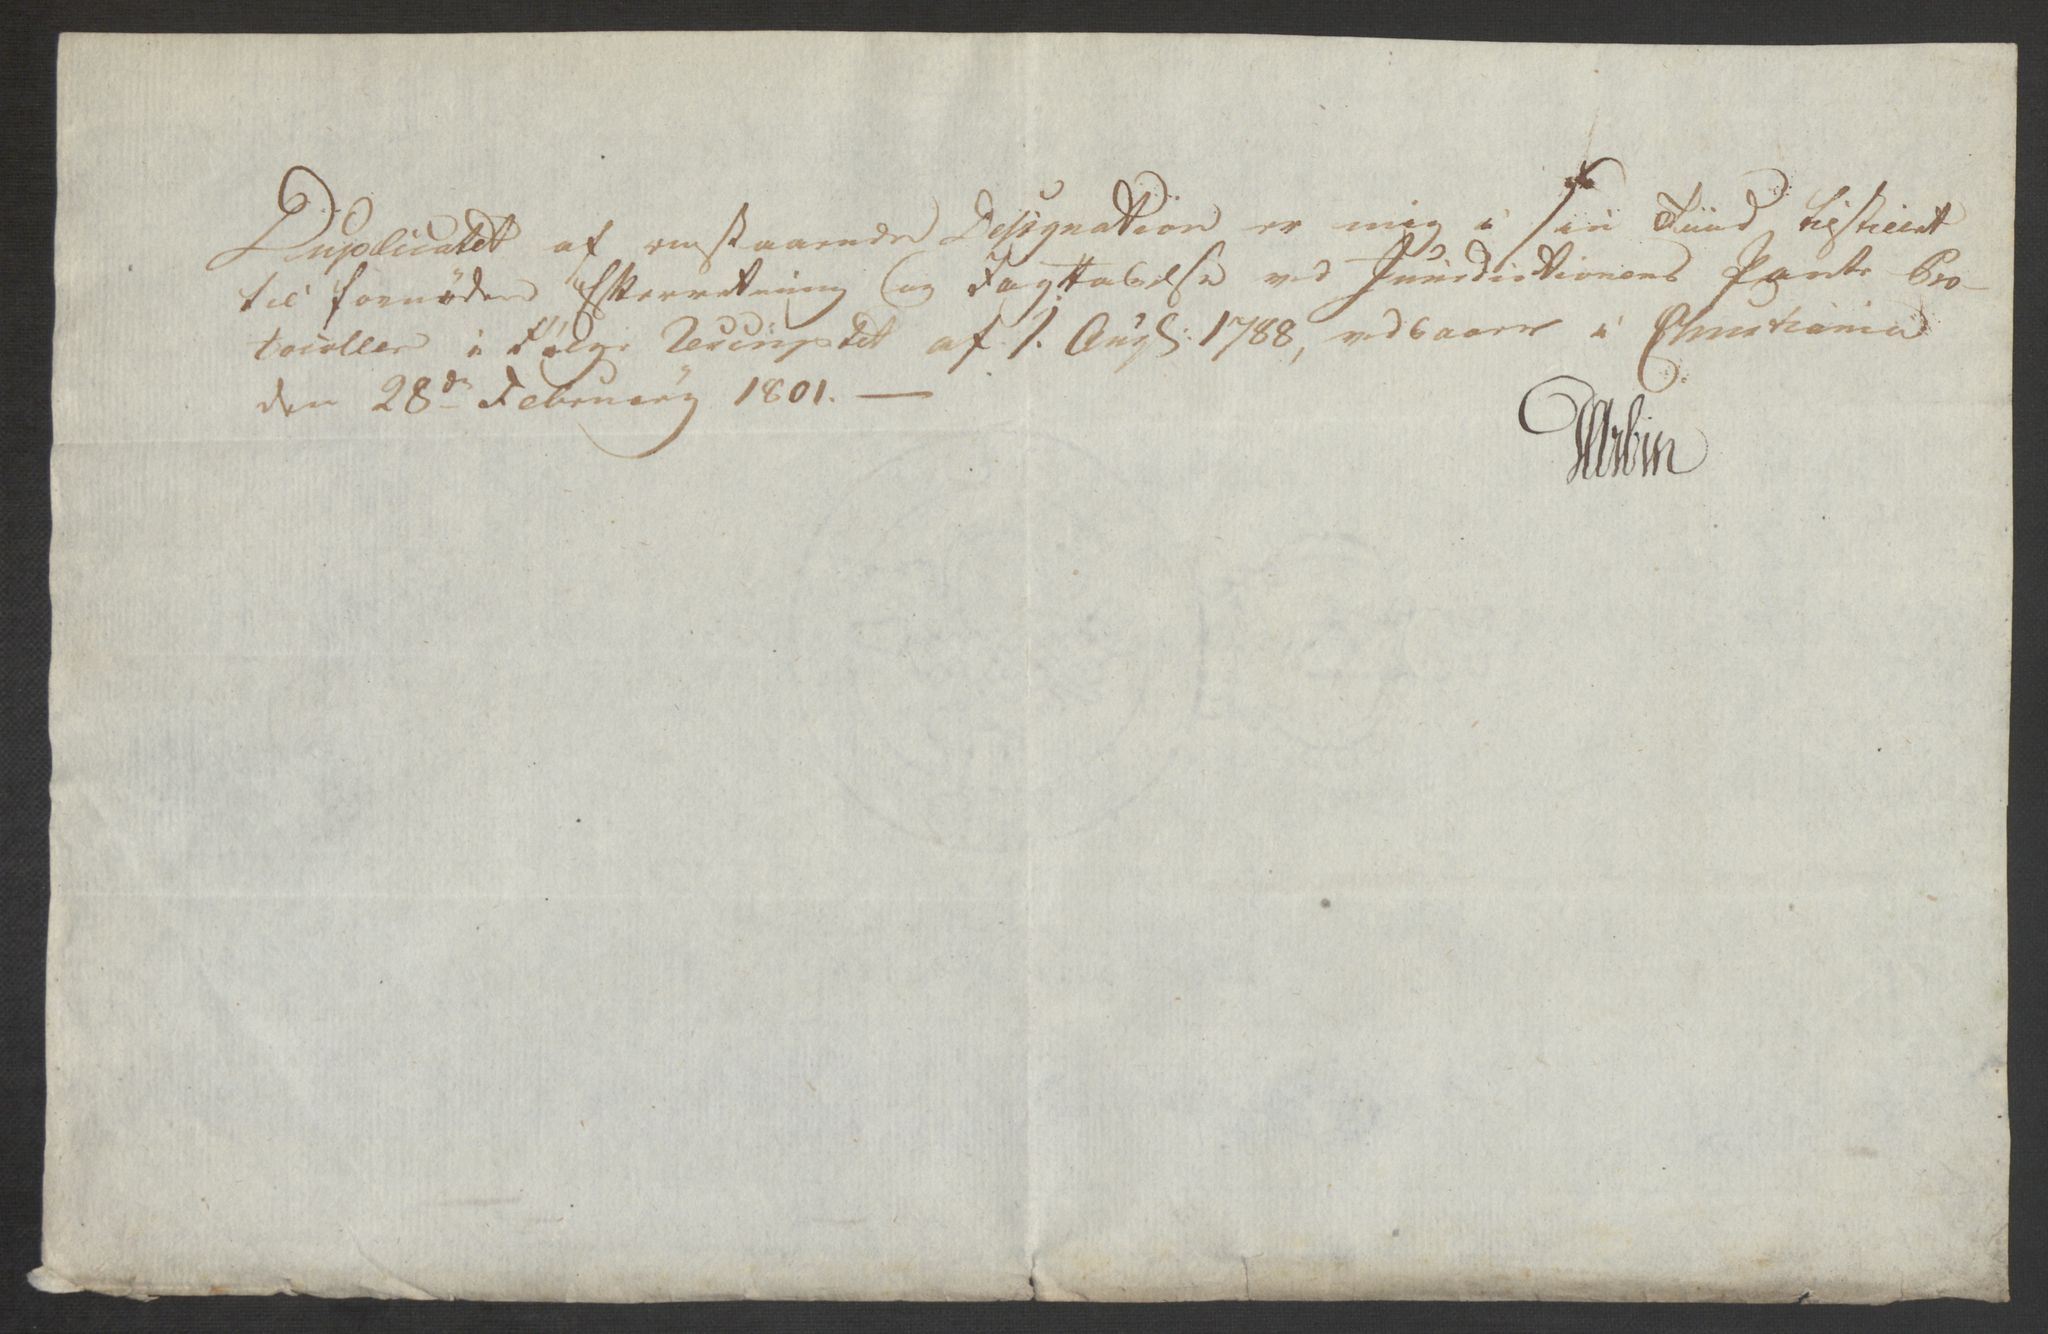 Duplicatet af omstaaende Designation er mig i sin Tiid tilstillet
til fornøden Efterretning og Iagttagelse ved Jurisdictionens Pante Pro-
tocoller i Følge Rescriptet af 1. Aug: 1788, vedbaarer i Christiania
den 28de February 1801. —
Arbin